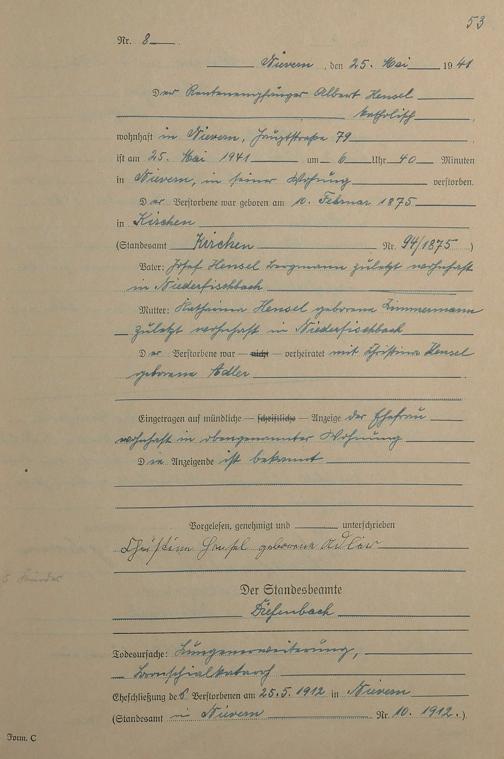 53
Nr. 8
Nievern, den 25. Mai 1941
Der Rentenempfänger Albert Hensel
katholisch
wohnhaft in Nievern, Hauptstraße 79
ist am 25. Mai 1941 um 6 Uhr 40 Minuten
in Nievern, in seiner Wohnung verstorben.
Der Verstorbene war geboren am 10. Februar 1875
in Kirchen
(Standesamt Kirchen Nr. 94/1875)
Vater: Josef Hensel Bergmann zuletzt wohnhaft
in Niederfischbach
Mutter: Katharina Hensel geborene Zimmermann
zuletzt wohnhaft in Niederfischbach
Der Verstorbene war — nicht — verheiratet mit Christina Hensel
geborene Adler
Eingetragen auf mündliche — schriftliche — Anzeige der Ehefrau
wohnhaft in obengenannter Wohnung
Die Anzeigende ist bekannt
Vorgelesen, genehmigt und unterschrieben
Christina Hensel geborene Adler
Der Standesbeamte
Diefenbach
Todesursache: Lungenerweiterung,
Bronchialkatarrh
Eheschließung des Verstorbenen am 25.5.1912 in Nievern
(Standesamt in Nievern Nr. 10. 1912.)
Form. C